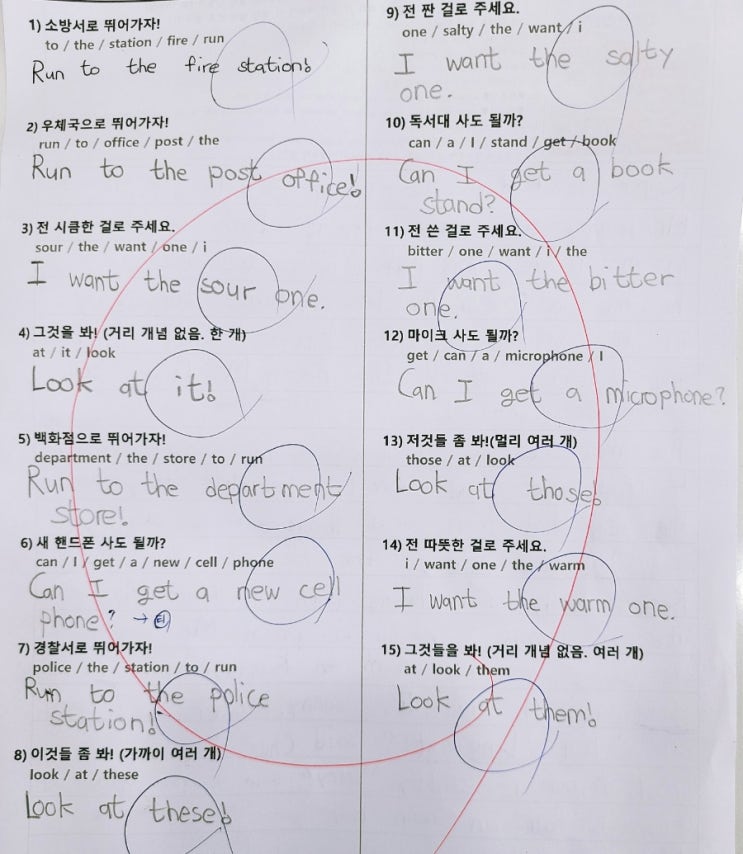 1) 소방서로 뛰어가자!
to / the / station / fire / run
Run to the fire station!
2) 우체국으로 뛰어가자!
run / to / office / post / the
Run to the post office!
3) 전 시큼한 걸로 주세요.
sour / the / want / one / i
I want the sour one.
4) 그것을 봐! (거리 개념 없음. 한 개)
at / it / look
Look at it!
5) 백화점으로 뛰어가자!
department / the / store / to / run
Run to the department
store!
6) 새 핸드폰 사도 될까?
can / I / get / a / new / cell / phone
Can I get a new cell
phone? →
7) 경찰서로 뛰어가자!
police / the / station / to / run
Run to the police
station!
8) 이것들 좀 봐! (가까이 여러 개)
look / at / these
Look at these!
9) 전 짠 걸로 주세요.
one / salty / the / want / i
I want the salty
one.
10) 독서대 사도 될까?
can / a / I / stand / get / book
Can I get a book
stand?
11) 전 쓴 걸로 주세요.
bitter / one / want / i / the
I want the bitter
one.
12) 마이크 사도 될까?
get / can / a / microphone / I
Can I get a microphone?
13) 저것들 좀 봐!(멀리 여러 개)
those / at / look
Look at those!
14) 전 따뜻한 걸로 주세요.
i / want / one / the / warm
I want the warm one.
15) 그것들을 봐! (거리 개념 없음. 여러 개)
at / look / them
Look at them!